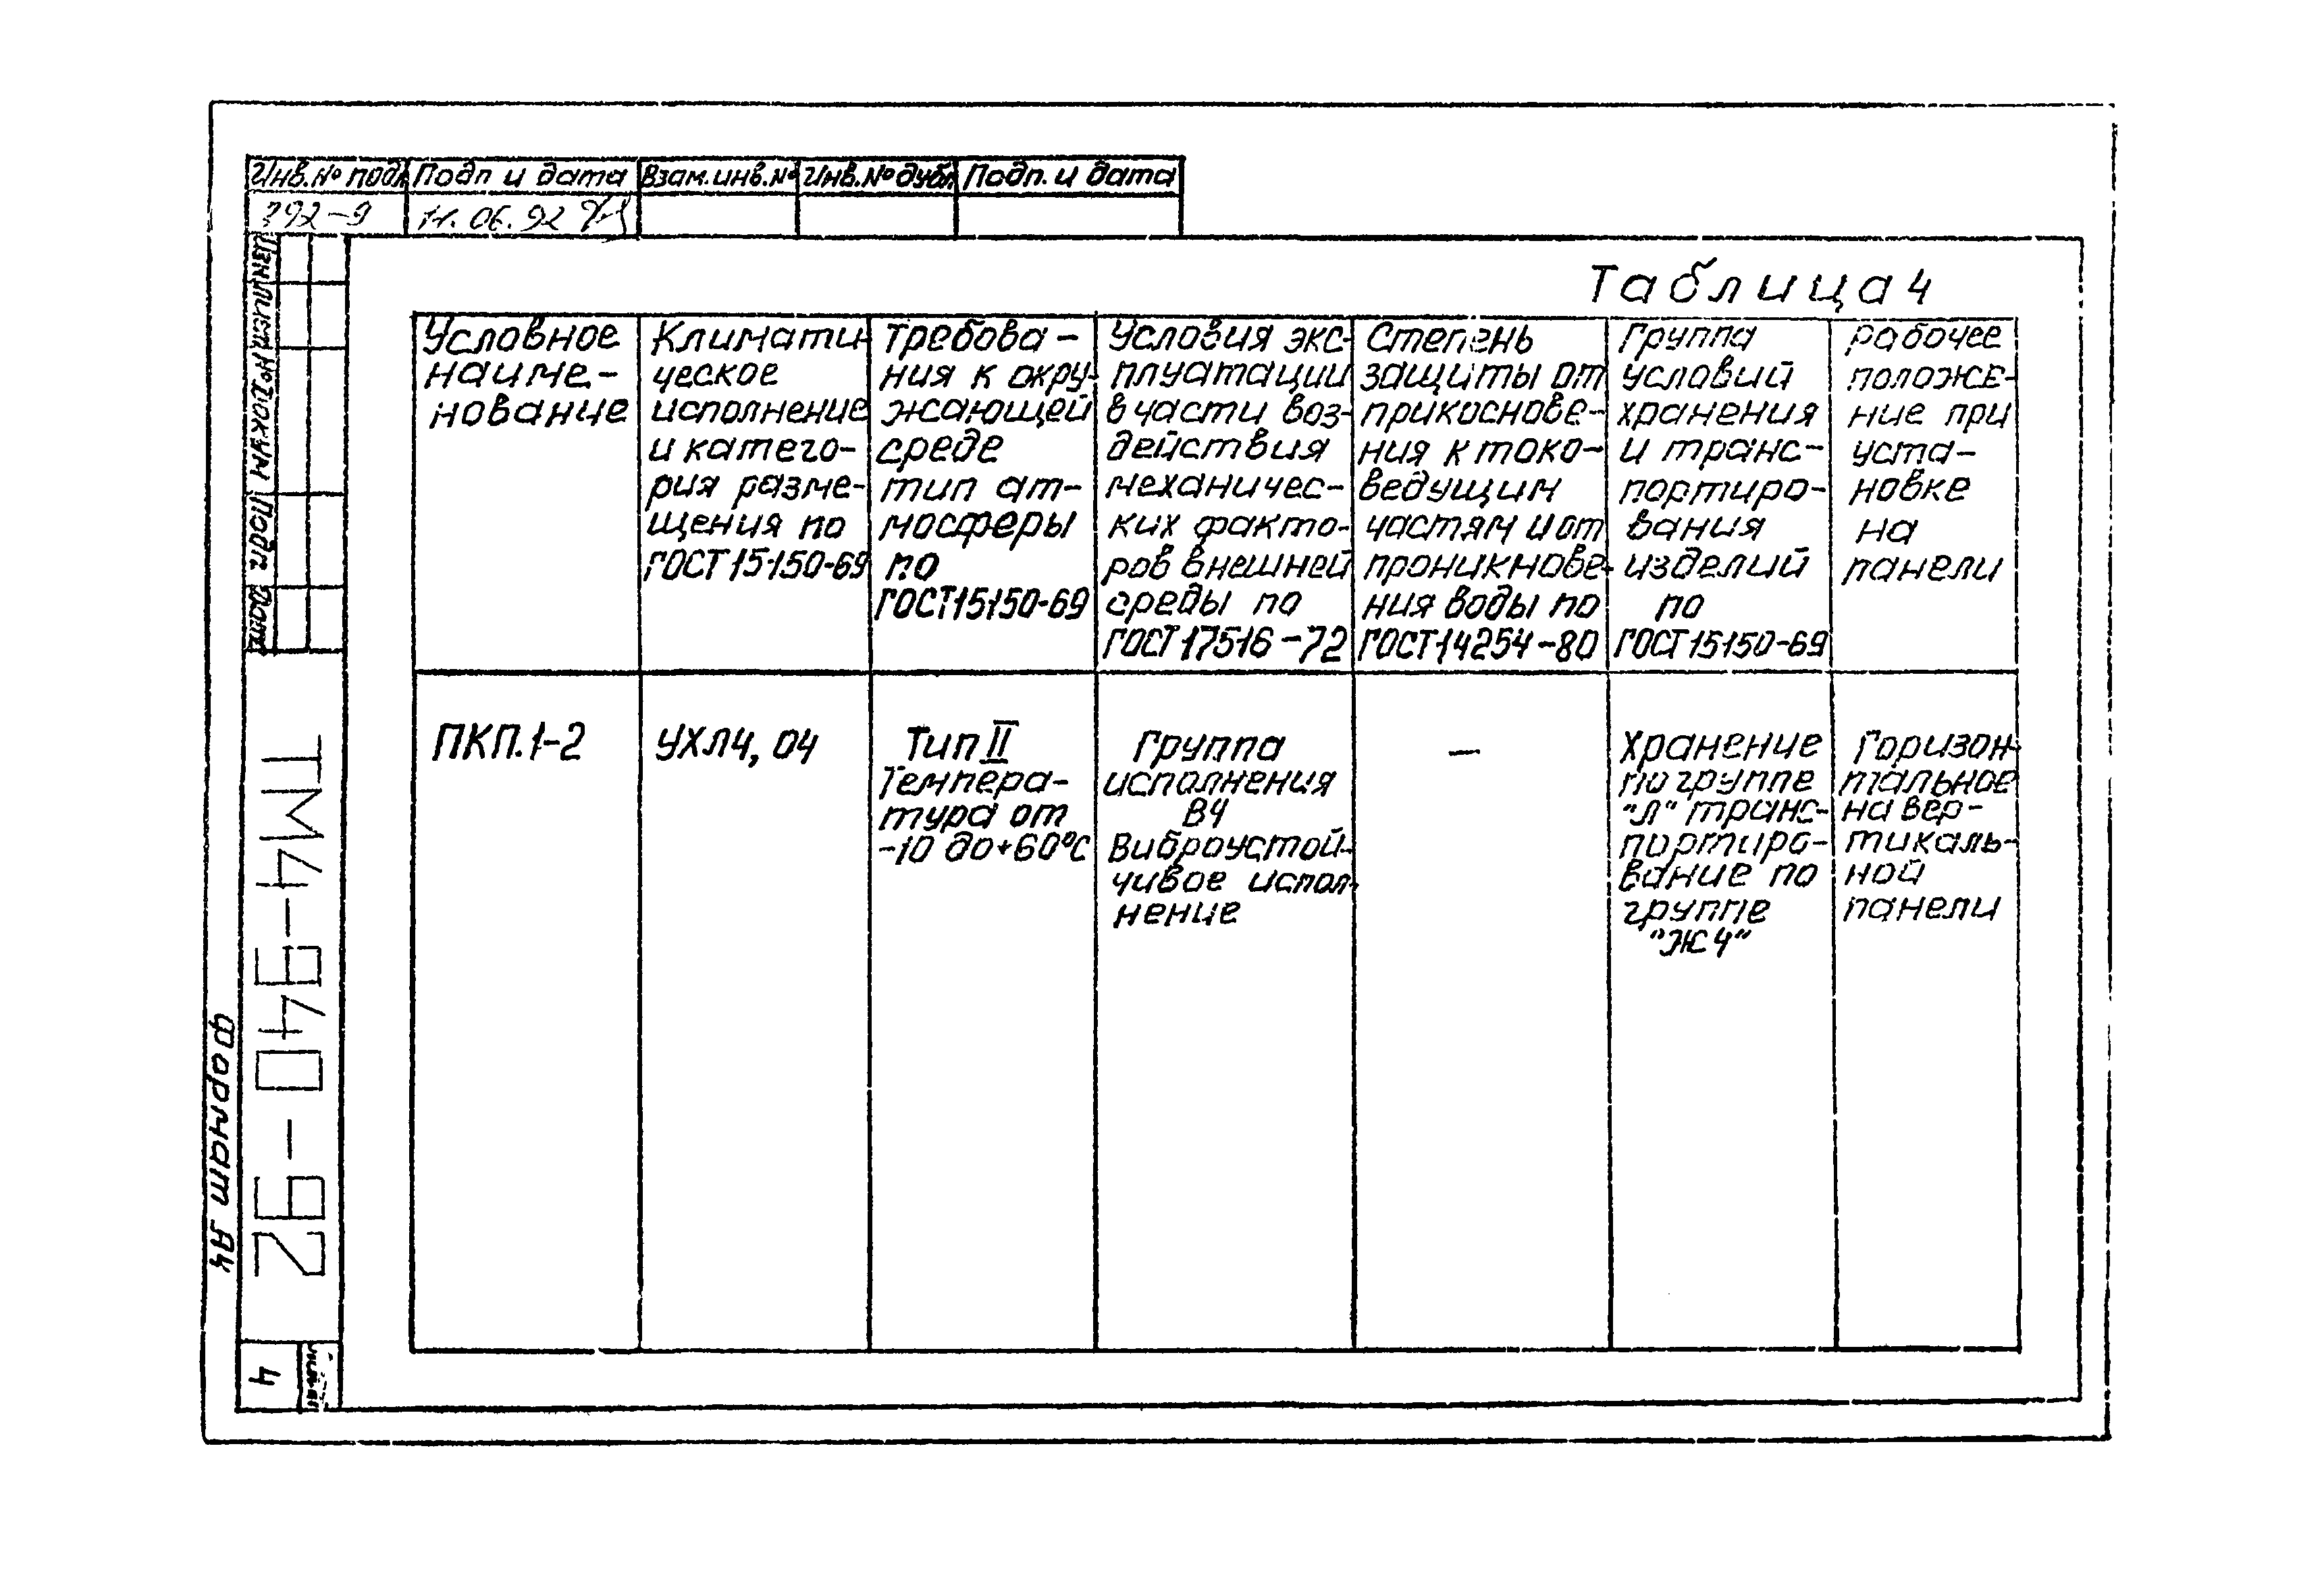 Инв.№ подл Подп и дата Взам.инв.№ Инв.№дубл Подп. и дата
11.06.92
Изм Лист №докум Подп. Дата
Таблица 4
Условное
наиме-
нование
Климати-
ческое
исполнение
и катего-
рия разме-
щения по
ГОСТ 15150-69
Требова-
ния к окру-
жающей
среде
тип ат-
мосферы
по
ГОСТ15150-69
Условия экс-
плуатации
в части воз-
действия
механичес-
ких факто-
ров внешней
среды по
ГОСТ 17516-72
Степень
защиты от
прикоснове-
ния к токо-
ведущим
частям и от
проникнове-
ния воды по
ГОСТ14254-80
Группа
условий
хранения
и транс-
портиро-
вания
изделий
по
ГОСТ15150-69
рабочее
положе-
ние при
уста-
новке
на
панели
ПКП.1-2
УХЛ4, 04
Тип II
Темпера-
тура от
-10 до+60°С
Группа
исполнения
В4
Виброустой-
чивое испол-
нение
—
Хранение
по группе
"Л" транс-
портиро-
вание по
группе
"Ж4"
Горизон-
тальное
на вер-
тикаль-
ной
панели
ТМ4-940-92
4
Формат А4